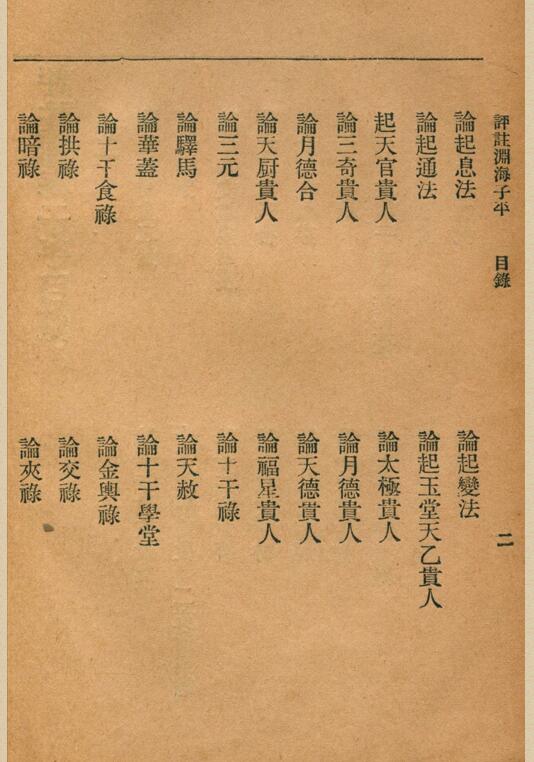 評註淵海子平 目錄 二
論起息法
論起變法
論起通法
論起玉堂天乙貴人
起天官貴人
論太極貴人
論三奇貴人
論月德貴人
論月德合
論天德貴人
論天厨貴人
論福星貴人
論三元
論十干祿
論驛馬
論天赦
論華蓋
論十干學堂
論十干食祿
論金輿祿
論拱祿
論交祿
論暗祿
論夾祿